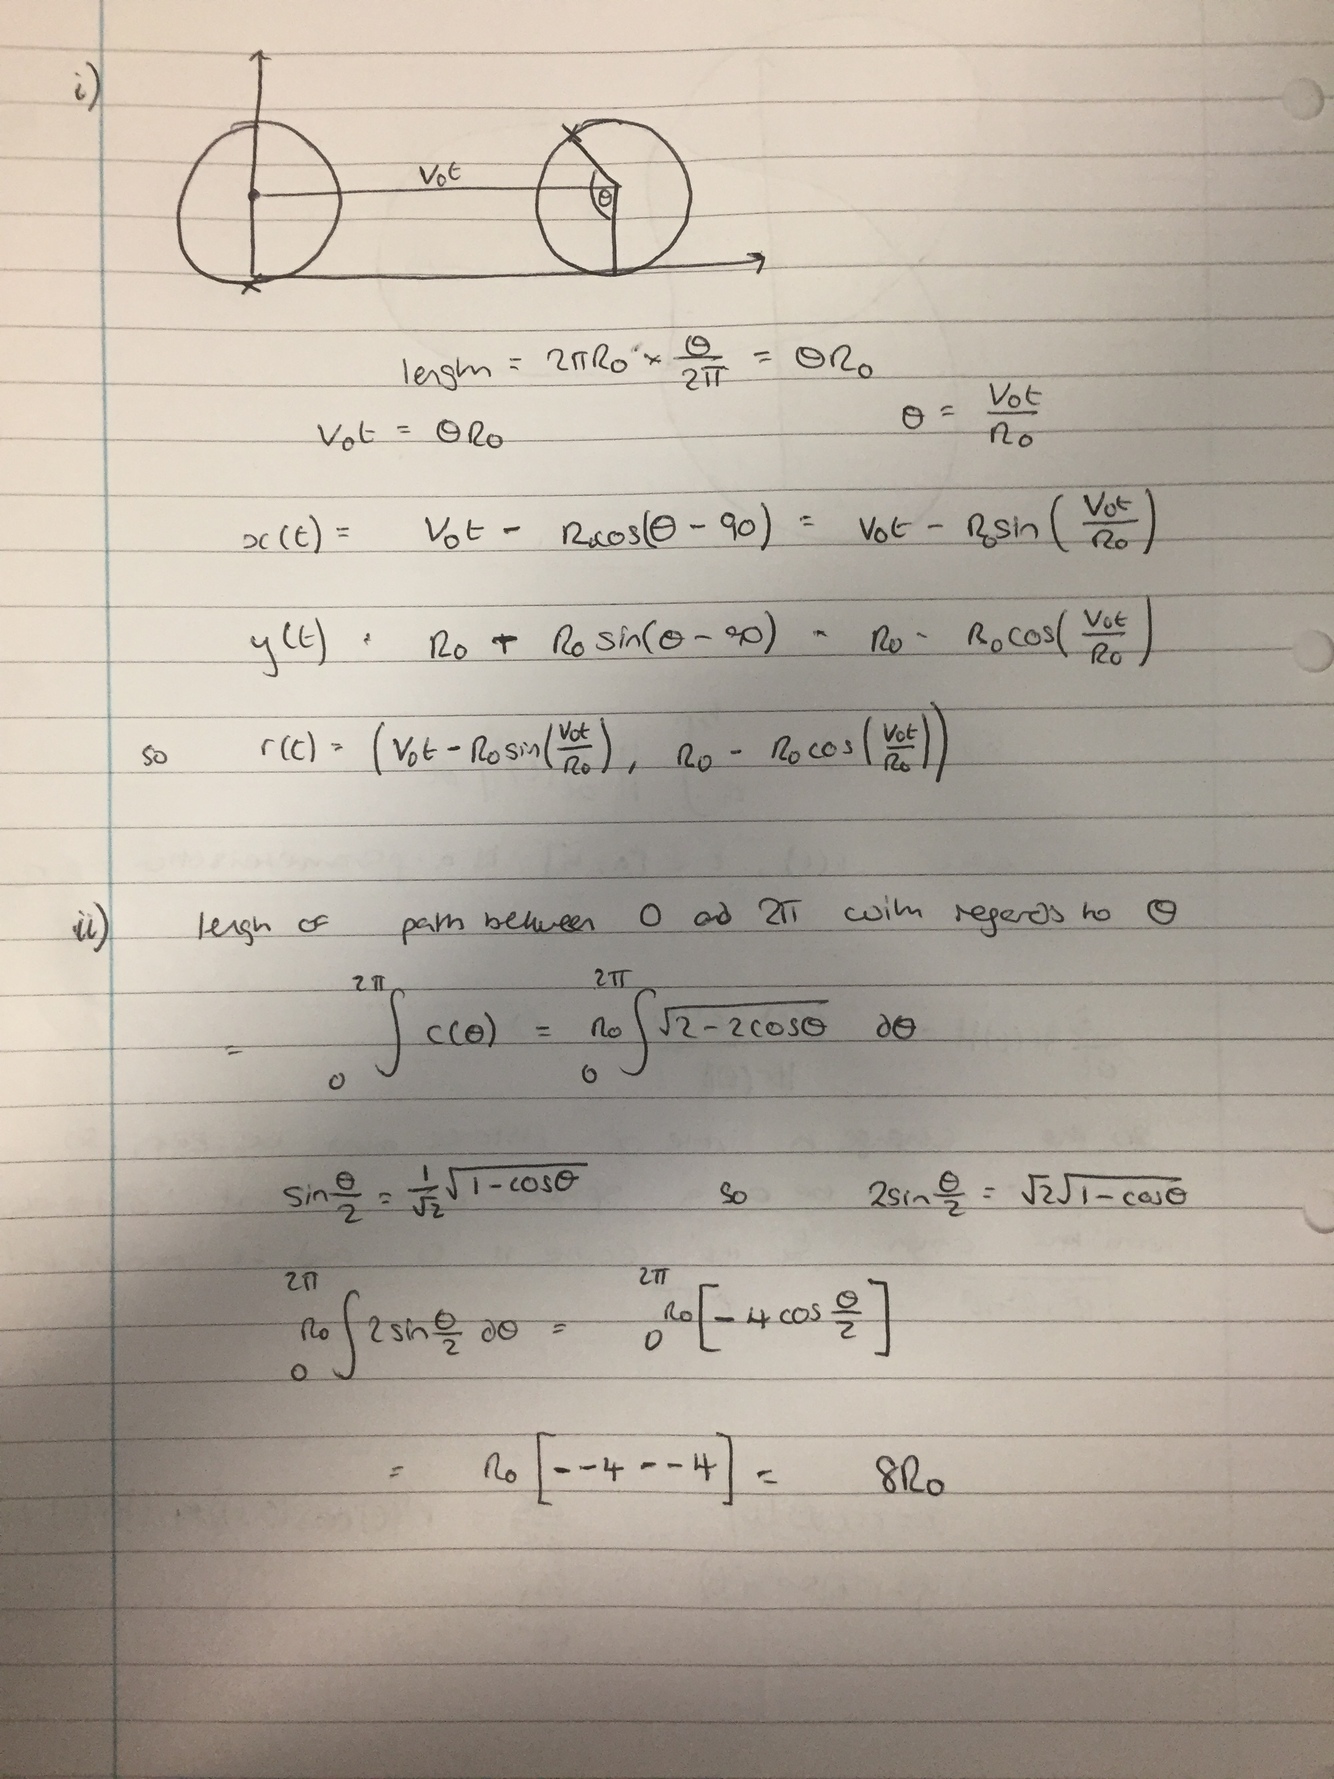 i)
V₀t
θ
length = 2πR₀ × θ/2π = θR₀
V₀t = θR₀ θ = V₀t/R₀
x(t) = V₀t - R₀cos(θ - 90) = V₀t - R₀sin(V₀t/R₀)
y(t) = R₀ + R₀ sin(θ - 90) = R₀ - R₀cos(V₀t/R₀)
so r(t) = (V₀t - R₀ sin(V₀t/R₀), R₀ - R₀cos(V₀t/R₀))
ii) length of path between 0 and 2π with regards to θ
= ∫₀^2π c(θ) = R₀ ∫₀^2π √(2-2cosθ) dθ
sin θ/2 = 1/√2 √(1-cosθ) so 2sin θ/2 = √2√(1-cosθ)
R₀ ∫₀^2π 2 sin θ/2 dθ = ₀^2π R₀[-4 cos θ/2]
= R₀[--4 - -4] = 8R₀